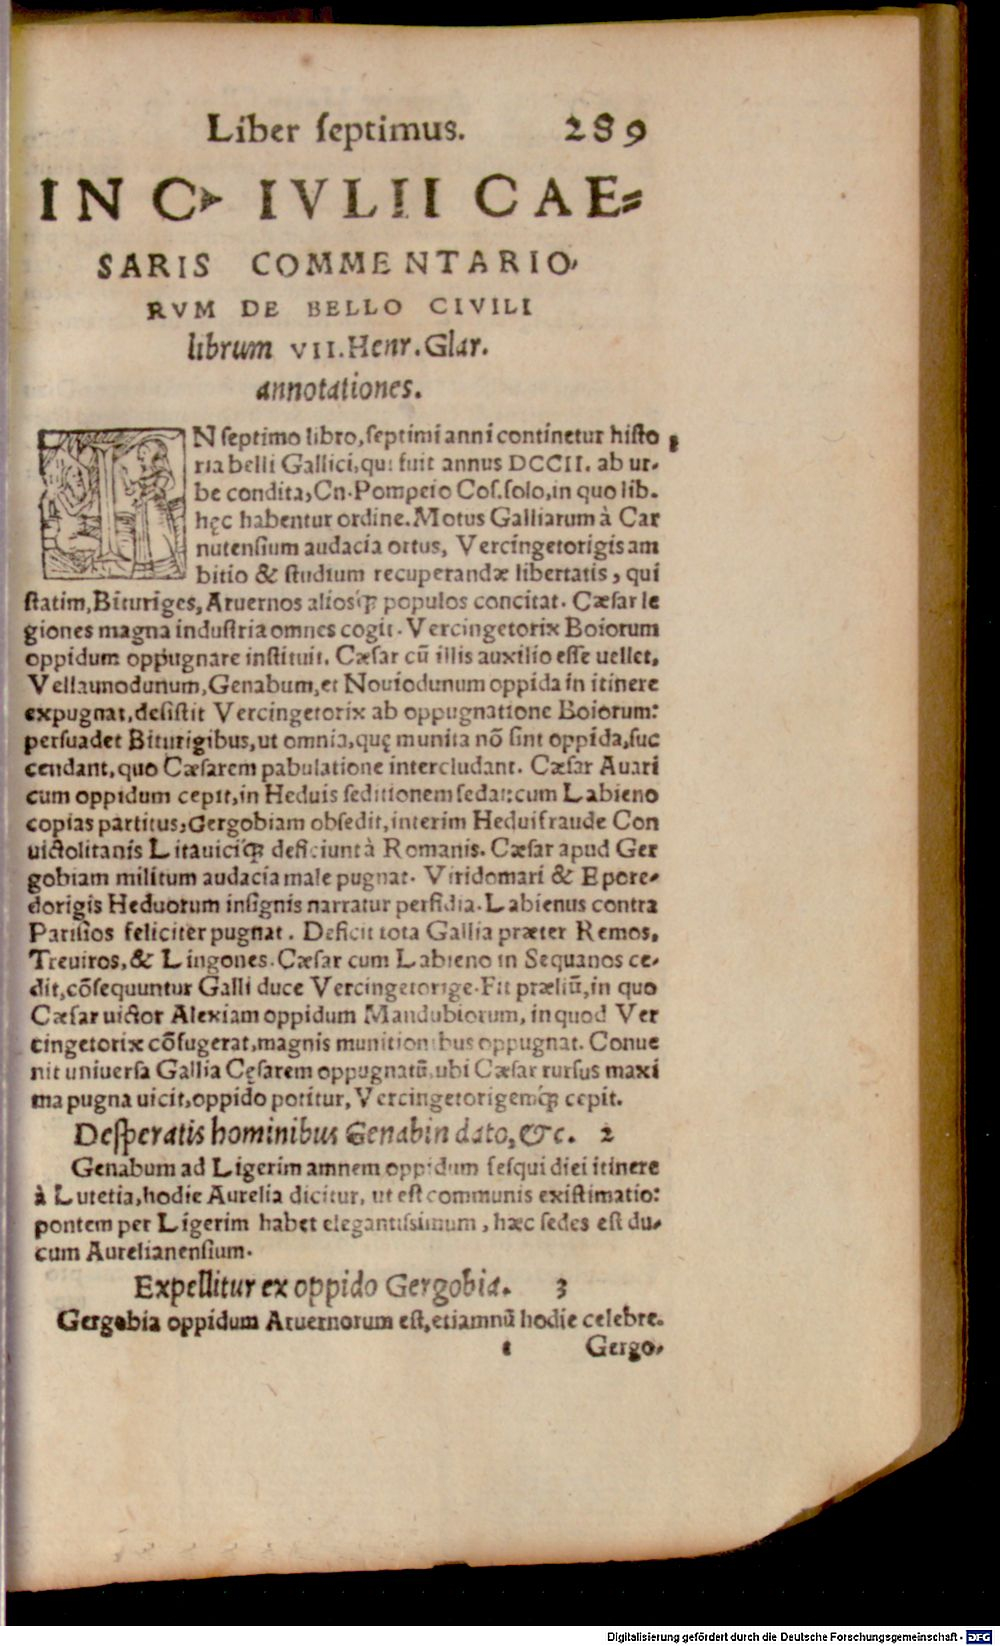 Liber septimus. 289
IN C. IVLII CAE=
SARIS COMMENTARIO,
RVM DE BELLO CIVILI
librum VII. Henr. Glar.
annotationes.
IN septimo libro, septimi anni continetur histo 1
ria belli Gallici, qui fuit annus DCCII. ab ur-
be condita, Cn. Pompeio Cos. solo, in quo lib.
hęc habentur ordine. Motus Galliarum à Car
nutensium audacia ortus, Vercingetorigis am
bitio & studium recuperandæ libertatis, qui
statim, Bituriges, Aruernos aliosq́; populos concitat. Cæsar le
giones magna industria omnes cogit. Vercingetorix Boiorum
oppidum oppugnare instituit. Cæsar cū illis auxilio esse uellet,
Vellaunodunum, Genabum, et Nouiodunum oppida in itinere
expugnat, desistit Vercingetorix ab oppugnatione Boiorum:
persuadet Biturigibus, ut omnia, quę munita nō sint oppida, suc
cendant, quo Cæsarem pabulatione intercludant. Cæsar Auari
cum oppidum cepit, in Heduis seditionem sedat: cum Labieno
copias partitus, Gergobiam obsedit, interim Hedui fraude Con
uictolitanis Litauiciq́; deficiunt à Romanis. Cæsar apud Ger
gobiam militum audacia male pugnat. Viridomari & Epore-
dorigis Heduorum insignis narratur perfidia. Labienus contra
Parisios feliciter pugnat. Deficit tota Gallia præter Remos,
Treuiros, & Lingones. Cæsar cum Labieno in Sequanos ce-
dit, cōsequuntur Galli duce Vercingetorige. Fit præliū, in quo
Cæsar uictor Alexiam oppidum Mandubiorum, in quod Ver
cingetorix cōfugerat, magnis munitionibus oppugnat. Conue
nit uniuersa Gallia Cęsarem oppugnatū, ubi Cæsar rursus maxi
ma pugna uicit, oppido potitur, Vercingetorigemq́; cepit.
Desperatis hominibus Genabin dato, &c. 2
Genabum ad Ligerim amnem oppidum sesqui diei itinere
à Lutetia, hodie Aurelia dicitur, ut est communis existimatio:
pontem per Ligerim habet elegantissimum, hæc sedes est du-
cum Aurelianensium.
Expellitur ex oppido Gergobia. 3
Gergobia oppidum Aruernorum est, etiamnū hodie celebre.
t Gergo-
Digitalisierung gefördert durch die Deutsche Forschungsgemeinschaft - DFG